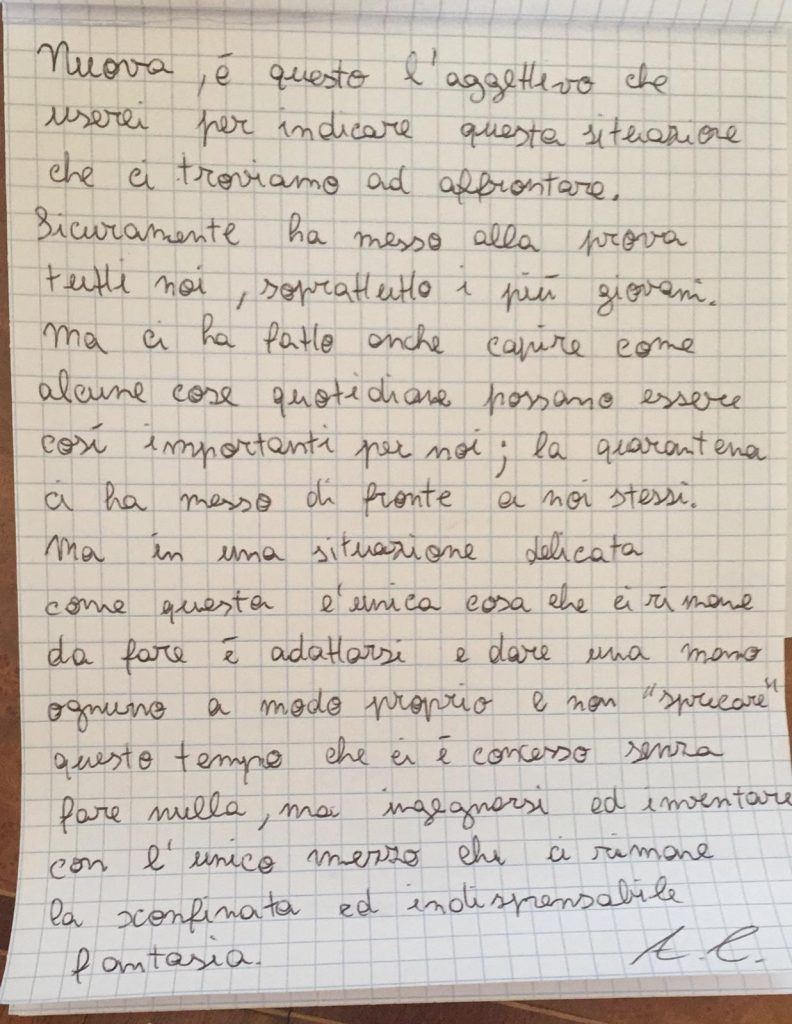 Nuova, è questo l'aggettivo che
userei per indicare questa situazione
che ci troviamo ad affrontare.
Sicuramente ha messo alla prova
tutti noi, soprattutto i più giovani.
Ma ci ha fatto anche capire come
alcune cose quotidiane possano essere
così importanti per noi; la quarantena
ci ha messo di fronte a noi stessi.
Ma in una situazione delicata
come questa l'unica cosa che ci rimane
da fare è adattarsi e dare una mano
ognuno a modo proprio e non "sprecare"
questo tempo che ci è concesso senza
fare nulla, ma ingegnarsi ed inventare
con l'unico mezzo che ci rimane
la sconfinata ed indispensabile
fantasia.
A.C.